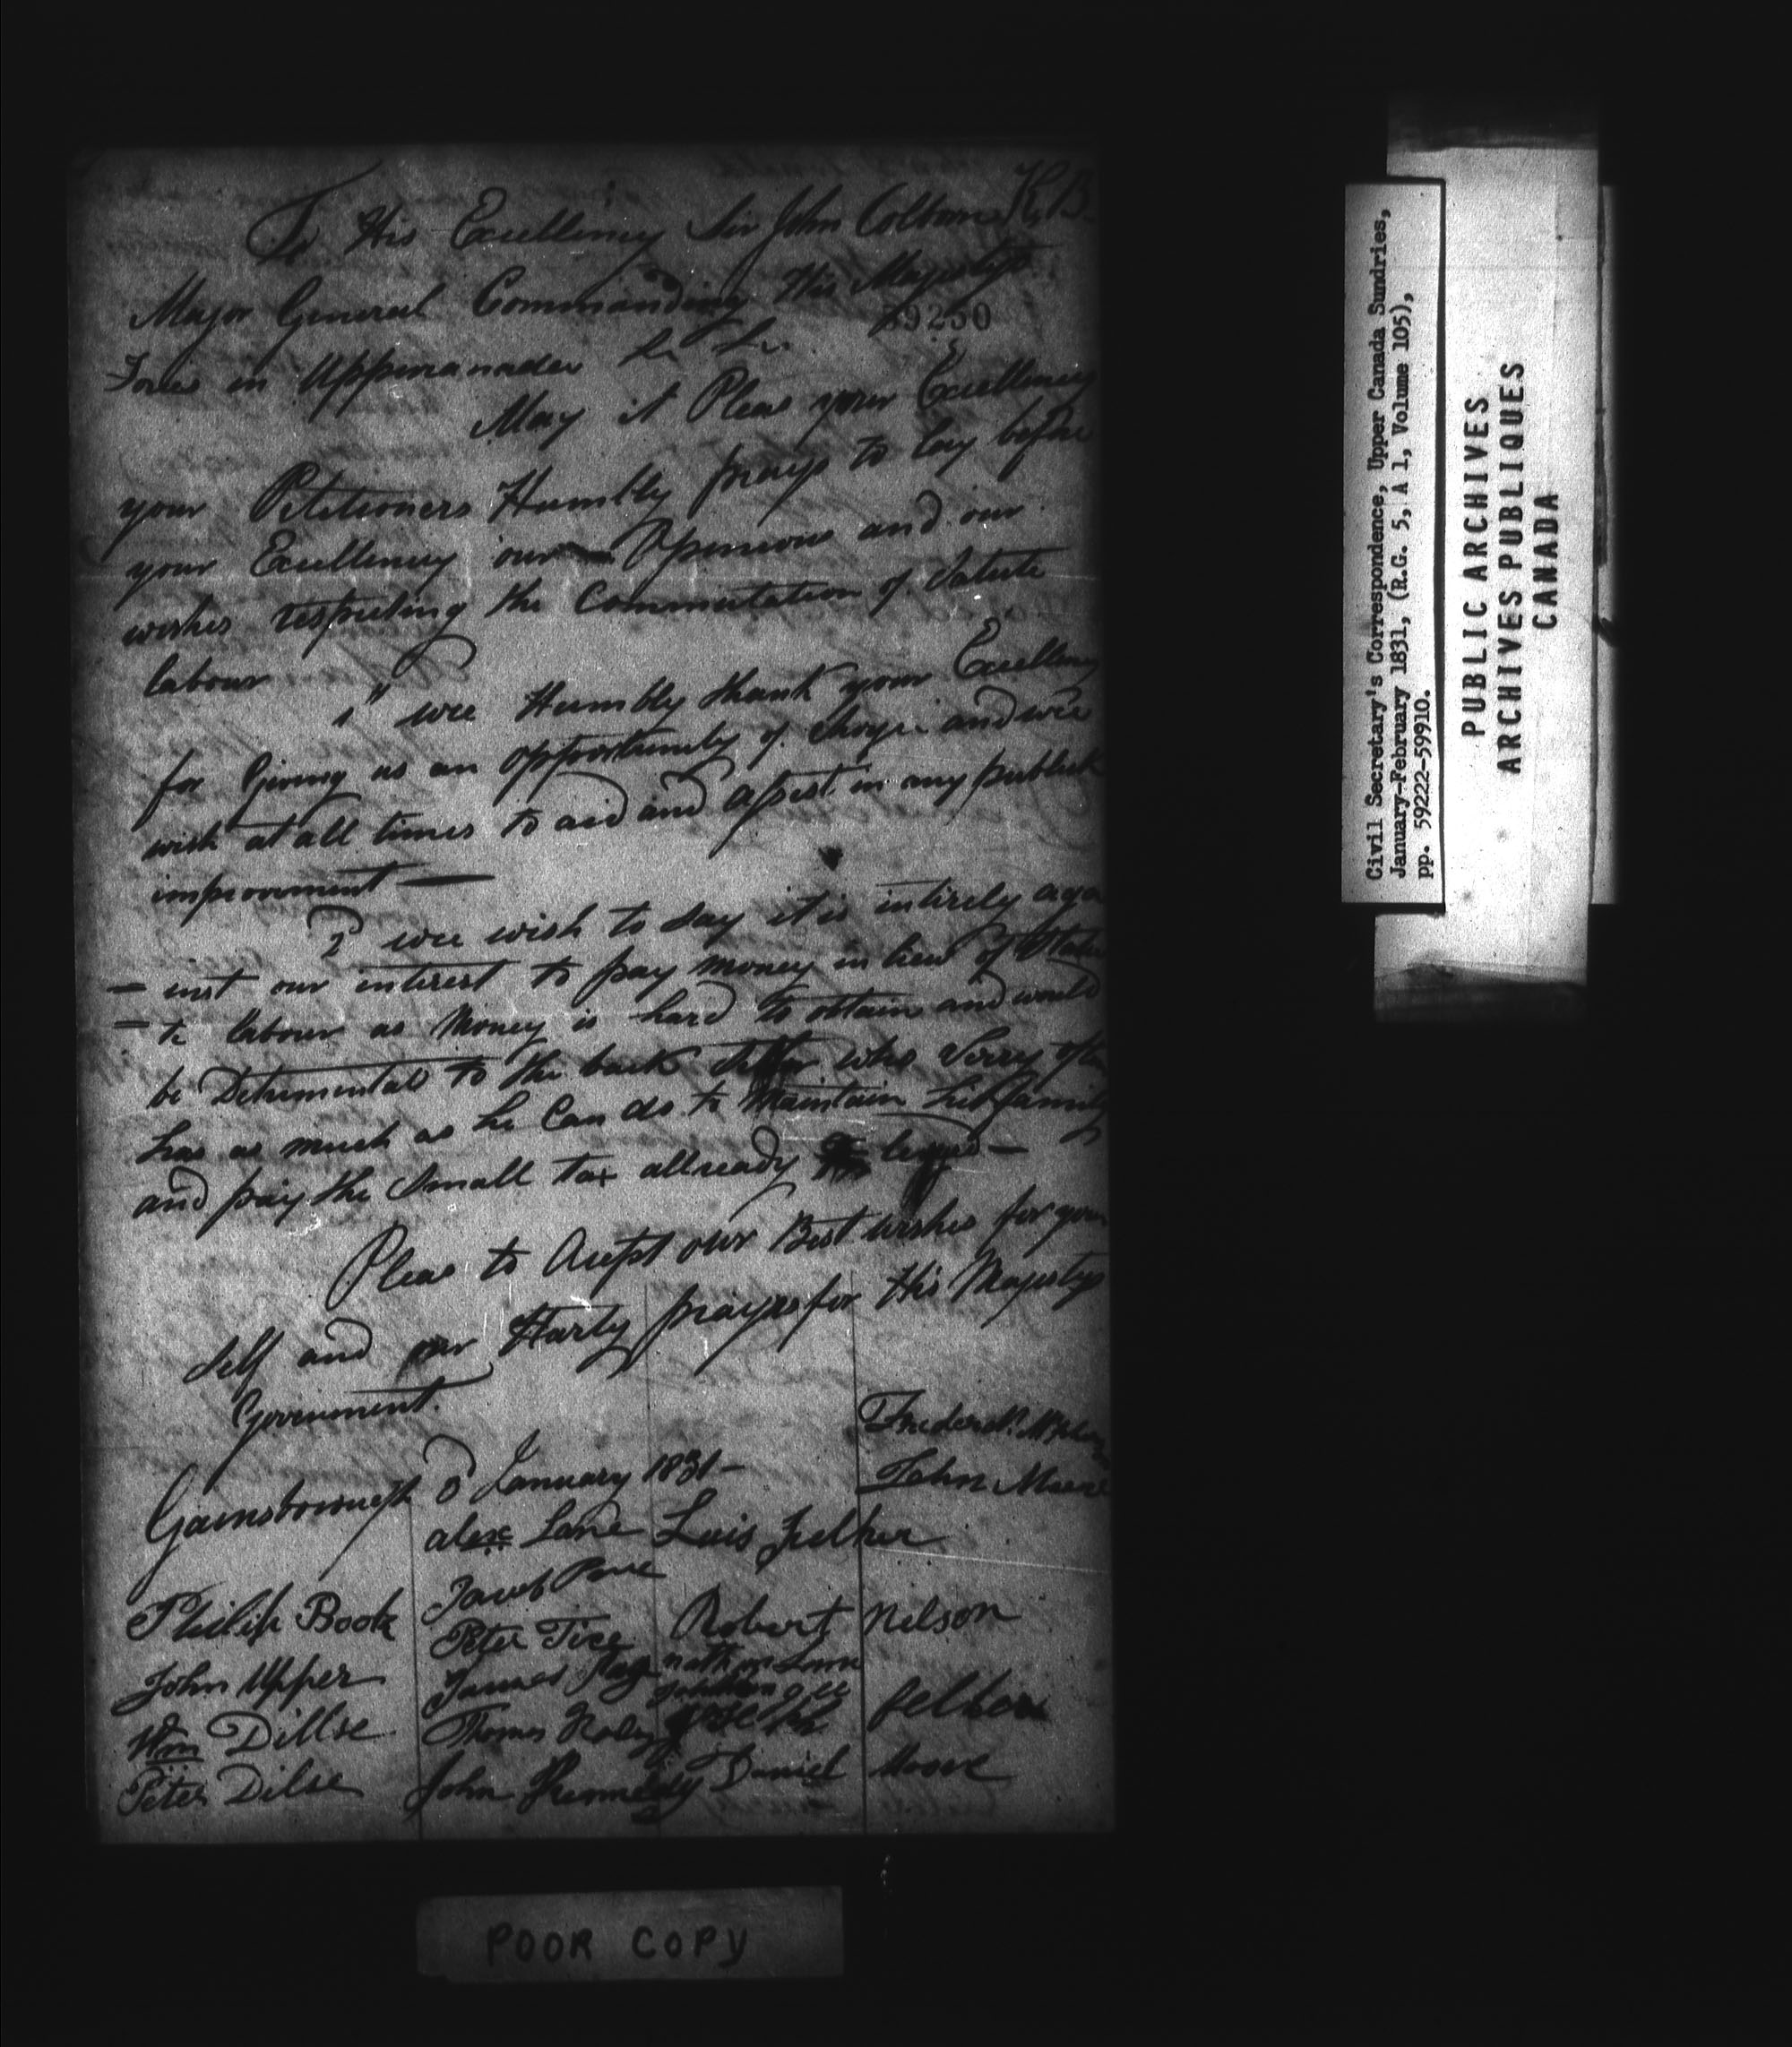 To His Excellency Sir John Colborne K.B.
Major General Commanding His Majestys
59230
Forces in Uppercanader &c &c
May it Pleas your Excellency
your Petitioners Humbly prays to lay before
your Excellency our Oppinions and our
wishes respecting the Commutation of Statute
labour
1st wee Humbly thank your Excellency
for Giving us an opportunity of and wee
wish at all times to aid and assist in any publick
improvment —
2 wee wish to say it is intirely aga
- inst our interest to pay money in lieu of Statu
- te labour as Money is hard to obtain and would
be Detrimental to the back who Verry often
has as much as he Can do to Maintain his family
and pay the Small tax allready —
Pleas to Our Best wishes for your
Self and our Harty prayers for His Majestys
Government.
Gainsborough 3 January 1831 —
John Moore
alexr Lane Luis Felker
Jacob
Philip Book Peter Tice Robert Nelson
John Upper James
Wm Dillse Thomas felker
Peter Dilse John Kennedy Daniel Moore
Civil Secretary's Correspondence, Upper Canada Sundries,
January-February 1831, (R.G. 5, A 1, Volume 105),
pp. 59222-59910.
PUBLIC ARCHIVES
ARCHIVES PUBLIQUES
CANADA
POOR COPY